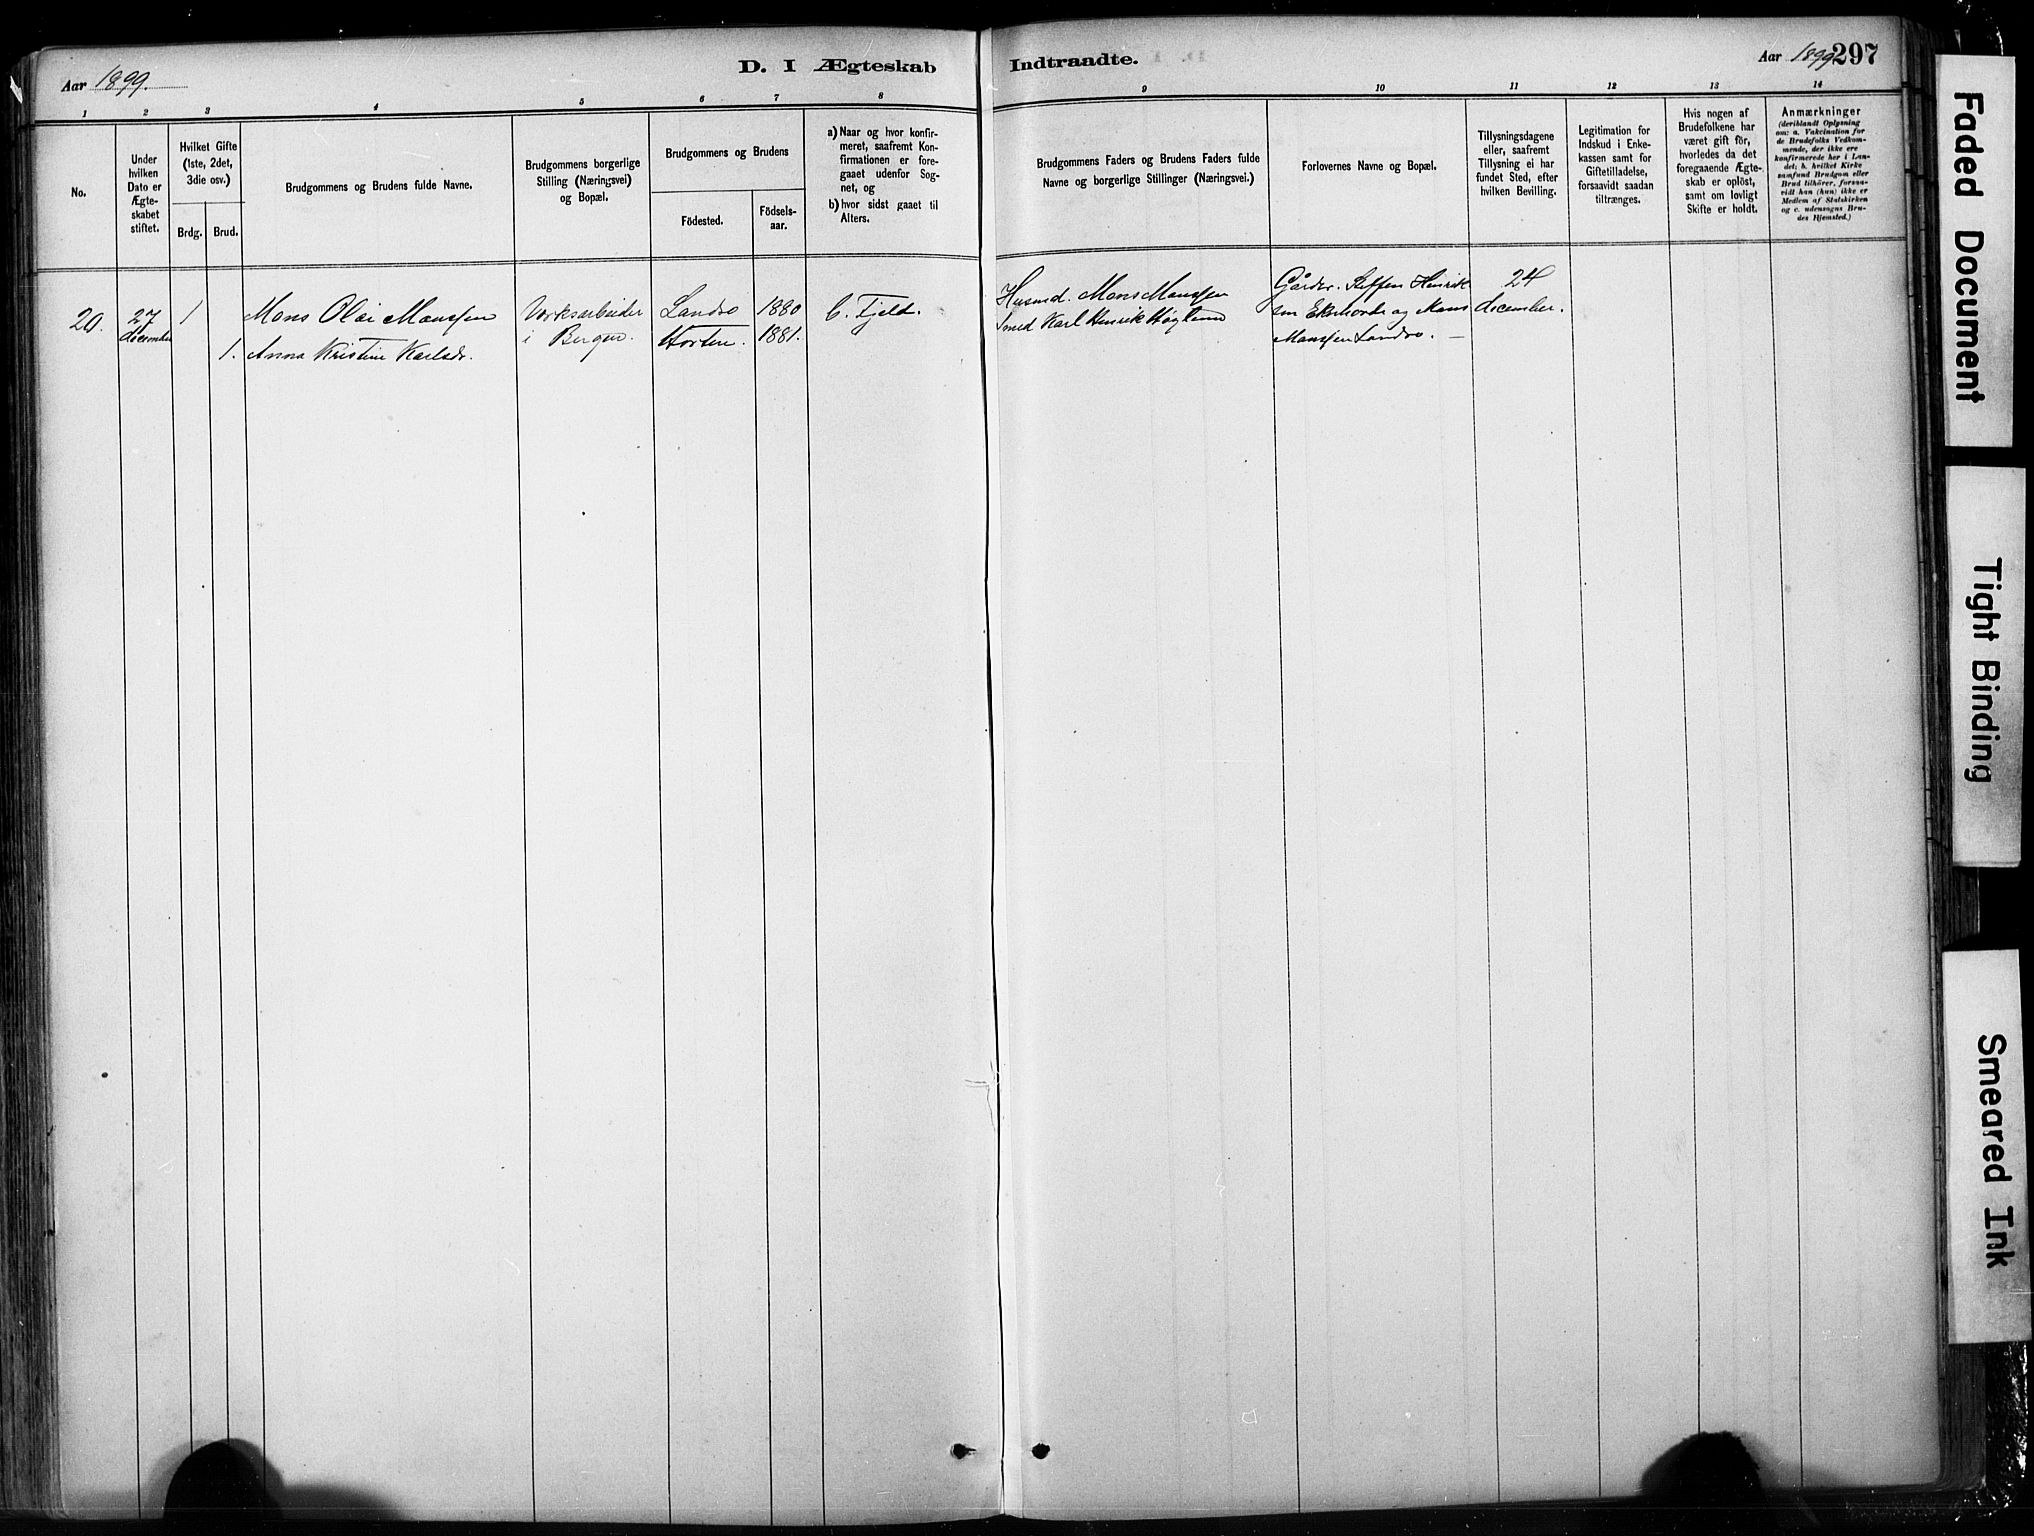 Aar 1899.
D. I Ægteskab
Indtraadte.
Aar 1899
297
1
2
3
4
5
6
7
8
9
10
11
12
13
14
No.
Under
hvilken
Dato er
Ægte-
skabet
stiftet.
Hvilket Gifte
(1ste, 2det,
3die osv.)
Brdg.
Brud.
Brudgommens og Brudens fulde Navne.
Brudgommens borgerlige
Stilling (Næringsvei)
og Bopæl.
Brudgommens og Brudens
Födested.
Födsels-
aar.
a) Naar og hvor konfir-
meret, saafremt Kon-
firmationen er fore-
gaaet udenfor Sog-
net, og
b) hvor sidst gaaet til
Alters.
Brudgommens Faders og Brudens Faders fulde
Navne og borgerlige Stillinger (Næringsvei.)
Forlovernes Navne og Bopæl.
Tillysningsdagene
eller, saafremt
Tillysning ei har
fundet Sted, efter
hvilken Bevilling.
Legitimation for
Indskud i Enke-
kassen samt for
Giftetilladelse,
forsaavidt saadan
tiltrænges.
Hvis nogen af
Brudefolkene har
været gift för,
hvorledes da det
foregaaende Ægte-
skab er oplöst,
samt om lovligt
Skifte er holdt.
Anmærkninger
(deriblandt Oplysning
om: a. Vakcination for
de Brudefolks Vedkom-
mende, der ikke ere
konfirmerede her i Lan-
det; b. hvilket Kirke
samfund Brudgom eller
Brud tilhörer, forsaa-
vidt han (hun) ikke er
Medlem af Statskirken
og c. udensogns Bru-
des Hjemsted.)
20.
27
december
1
1.
Mons Olai Monssen
Anna Kristine Karlsdr.
i Bergen.
Landro
Horten.
1880
1881.
Fjeld.
Husmd. Mons Monssen
Smed Karl Henrik Høglund
Gårdbr. Steffen Henrik
sen Ekerhovde og Mons
Monssen Landro. —
24
december.
Faded Document
Tight Binding
Smeared Ink